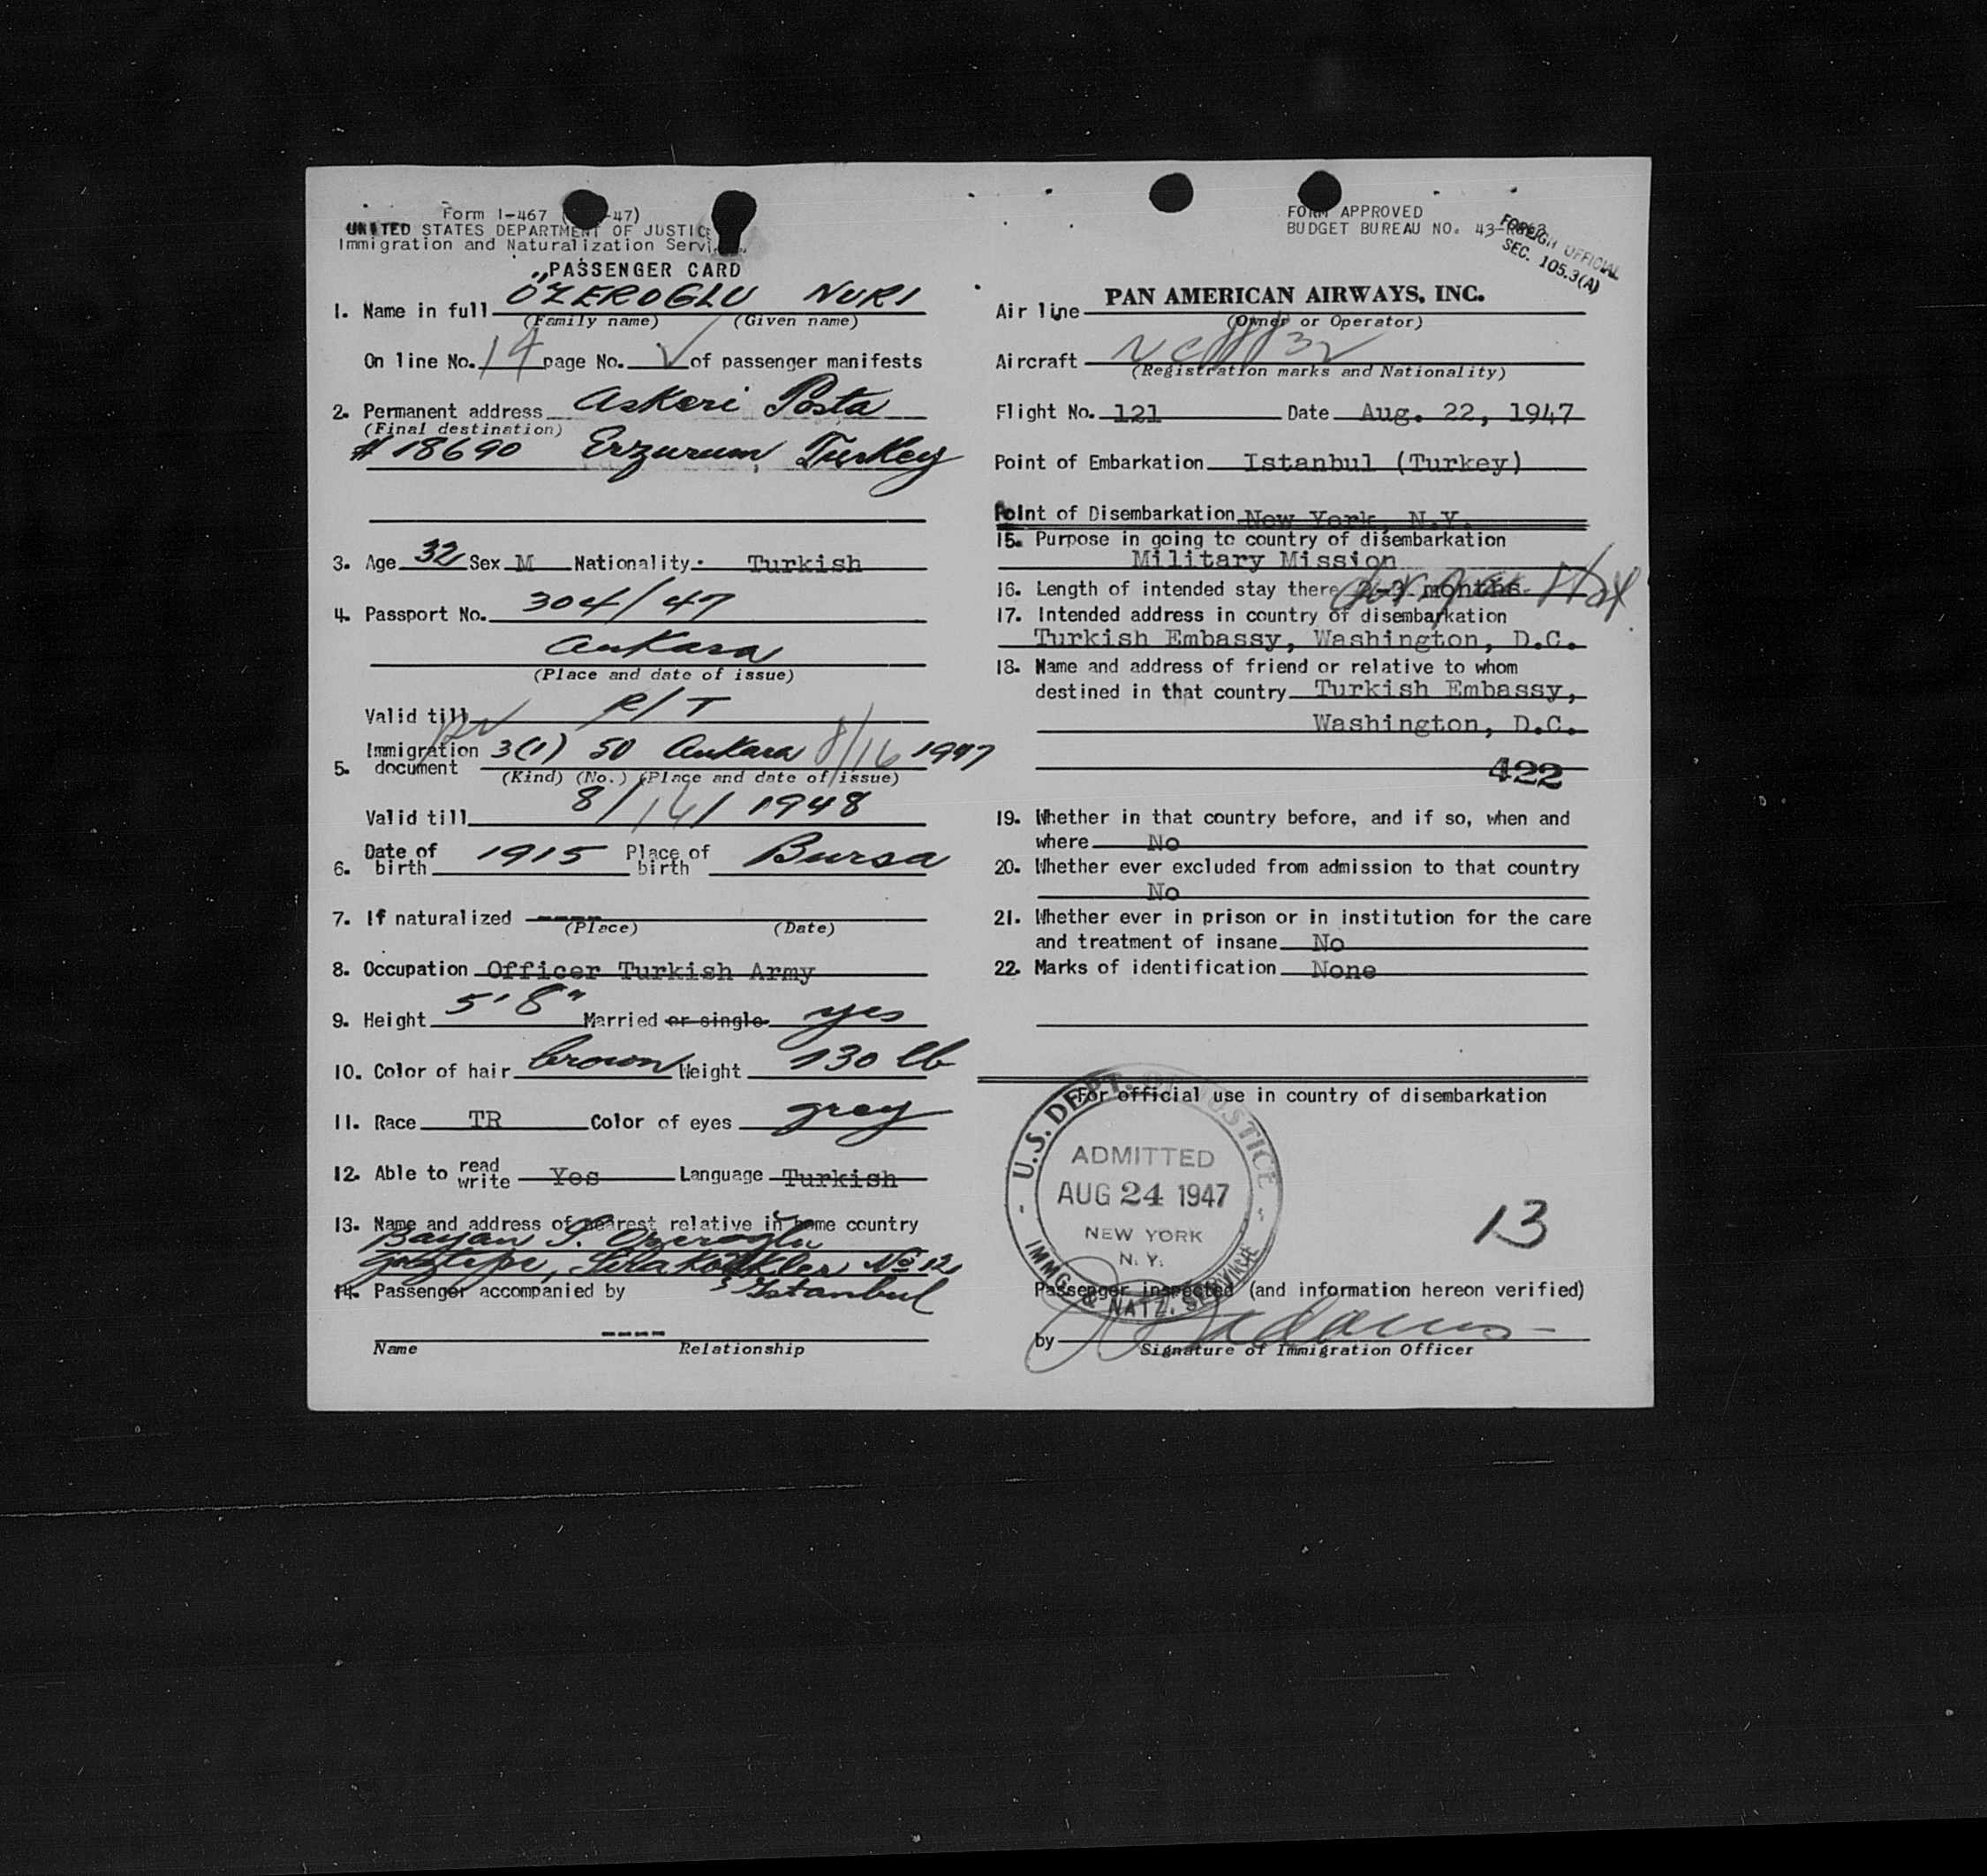 Form I-467 ( -47)
UNITED STATES DEPARTMENT OF JUSTICE
Immigration and Naturalization Servi
PASSENGER CARD
1. Name in full ÖZEROGLU NURI
(Family name) (Given name)
On line No. 14 page No. of passenger manifests
2. Permanent address Askeri Posta
(Final destination)
# 18690 Erzurum, Turkey
3. Age 32 Sex M Nationality Turkish
4. Passport No. 304/47
Ankara
(Place and date of issue)
Valid till P/T
5. Immigration document 3(1) 50 Ankara 8/16 1947
(Kind) (No.) (Place and date of issue)
Valid till 8/14/1948
6. Date of birth 1915 Place of birth Bursa
7. If naturalized ----
(Place) (Date)
8. Occupation Officer Turkish Army
9. Height 5'8" Married or single yes
10. Color of hair brown Weight 130 lb
11. Race TR Color of eyes grey
12. Able to read write Yes Language Turkish
13. Name and address of nearest relative in home country
Bayan S. Ozeroglu
No 12,
Istanbul
14. Passenger accompanied by
----
Name Relationship
FORM APPROVED
BUDGET BUREAU NO. 43-
FOREIGN OFFICIAL
SEC. 105.3(A)
Air line PAN AMERICAN AIRWAYS, INC.
(Owner or Operator)
Aircraft
(Registration marks and Nationality)
Flight No. 121 Date Aug. 22, 1947
Point of Embarkation Istanbul (Turkey)
Point of Disembarkation New York, N.Y.
15. Purpose in going to country of disembarkation
Military Mission
16. Length of intended stay there months
17. Intended address in country of disembarkation
Turkish Embassy, Washington, D.C.
18. Name and address of friend or relative to whom
destined in that country Turkish Embassy,
Washington, D.C.
422
19. Whether in that country before, and if so, when and
where No
20. Whether ever excluded from admission to that country
No
21. Whether ever in prison or in institution for the care
and treatment of insane No
22. Marks of identification None
For official use in country of disembarkation
U.S. DEPT. OF JUSTICE
ADMITTED
AUG 24 1947
NEW YORK
N. Y.
IMMG. & NATZ. SERVICE
13
Passenger inspected (and information hereon verified)
by Adams
Signature of Immigration Officer